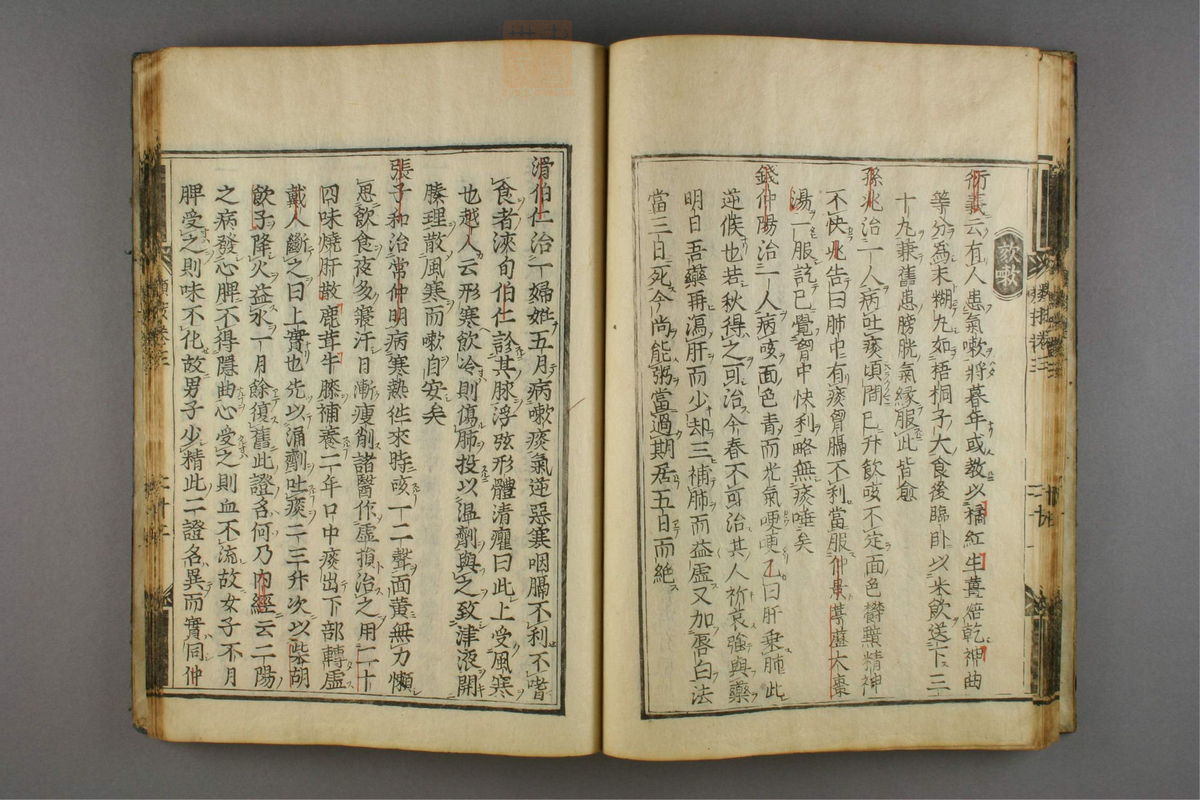 欬嗽
衍義云有人患氣嗽將暮年或教以橘紅生薑焙乾神曲
等分為末糊丸如梧桐子大食後臨臥以米飲送下三
十丸兼舊患膀胱氣緣服此皆愈
孫兆治一人病吐痰頃間已升飲咳不定面色鬱黯精神
不快兆告曰肺中有痰胷膈不利當服仲景葶藶大棗
湯一服訖已覺胷中快利略無痰唾矣
錢仲陽治一人病咳面色青而光氣哽哽乙曰肝乗肺此
逆候也若秋得之可治今春不可治其人祈哀強與藥
明日吾藥再瀉肝而少却三補肺而益虛又加唇白法
當三日死今尚能粥當過期居五日而絶
滑伯仁治一婦妊五月病嗽痰氣逆惡寒咽膈不利不嗜
食者浹旬伯仁診其脉浮弦形體清癯曰此上受風寒
也越人云形寒飲冷則傷肺投以温劑與之致津液開
腠理散風寒而嗽自安矣
張子和治常仲明病寒熱徃來時咳一二聲面黄無力懶
思飲食夜多寢汗日漸瘦削諸醫作虛損治之用二十
四味燒肝散鹿茸牛膝補養二年口中痰出下部轉虛
戴人斷之曰上實也先以涌劑吐痰二三升次以柴胡
飲子降火益水一月餘復舊此證名何乃内經云二陽
之病發心脾不得隱曲心受之則血不流故女子不月
脾受之則味不化故男子少精此二證名異而實同仲